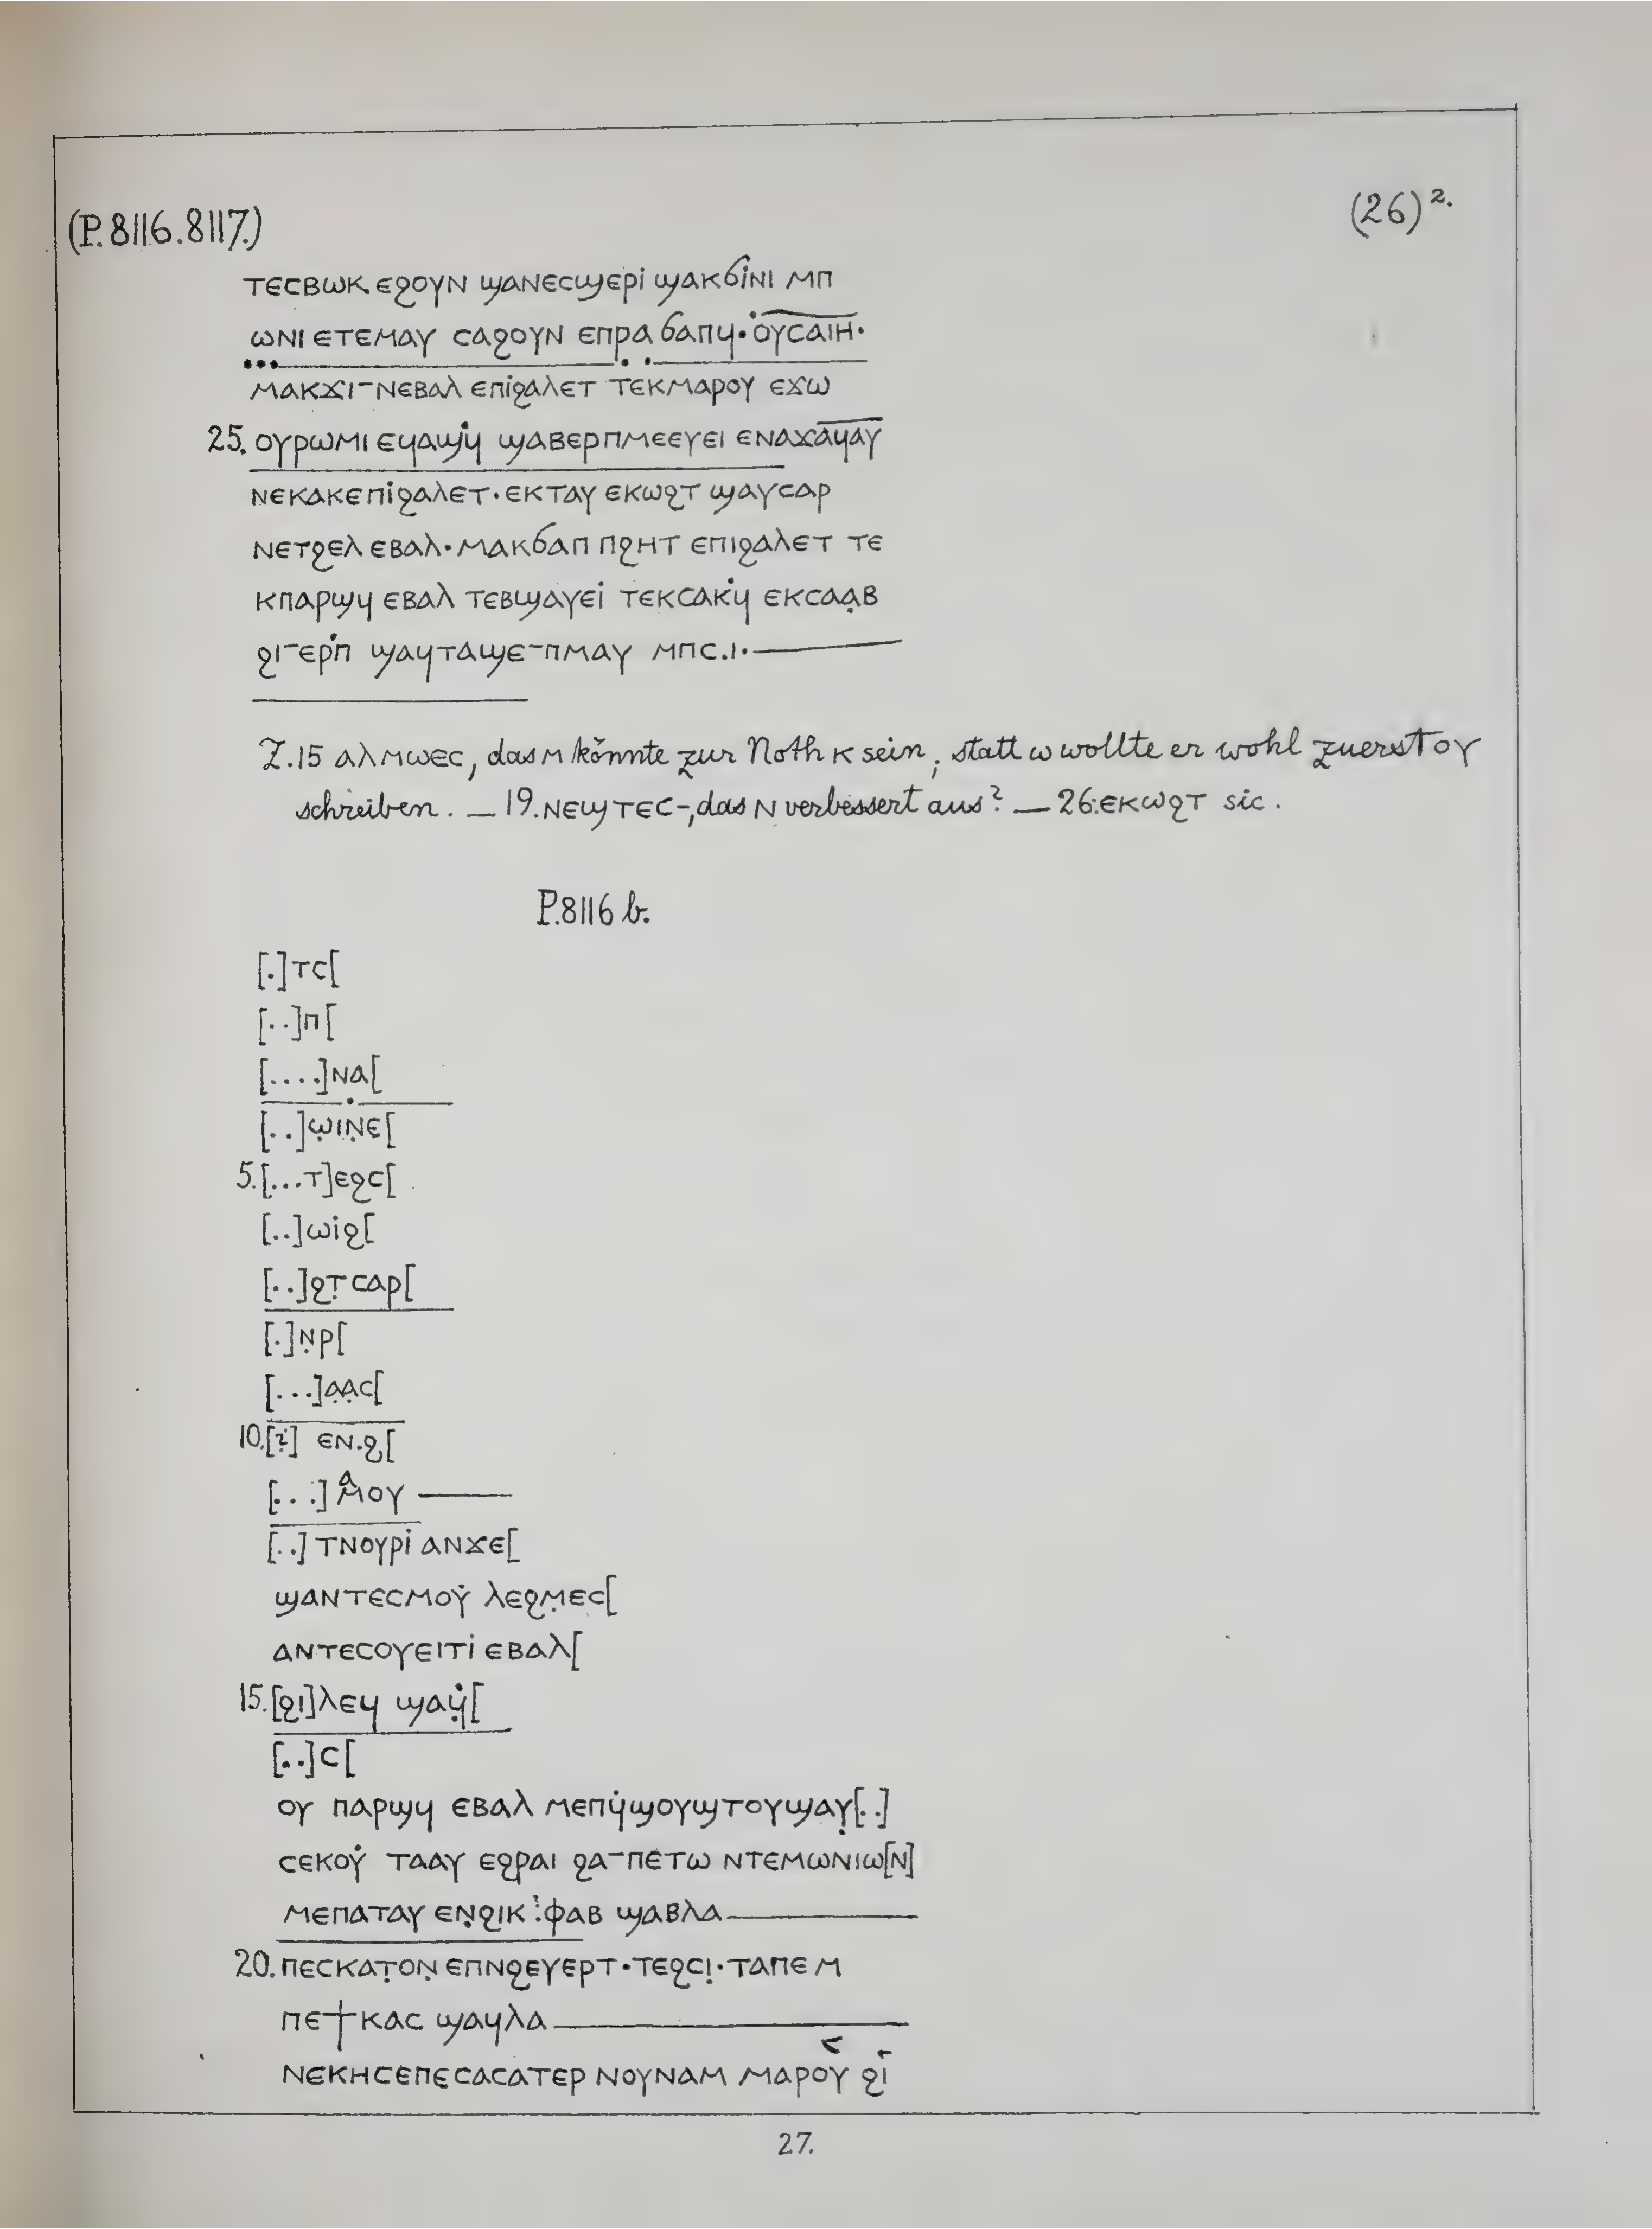 (P. 8116. 8117.)
(26)².
ⲧⲉⲥⲃⲱⲕ ⲉϩⲟⲩⲛ ϣⲁⲛⲉⲥϣⲉⲣⲓ̇ ϣⲁⲕϭⲓ̇ⲛⲓ ⲙⲡ
ⲱⲛⲓ ⲉⲧⲉⲙⲁⲩ ⲥⲁϩⲟⲩⲛ ⲉⲡⲣⲁ ϭⲁⲡϥ· ⲟⲩⲥⲁⲓⲏ·
ⲙⲁⲕϫⲓ-ⲛⲉⲃⲁⲗ ⲉⲡⲓ̇ϩⲁⲗⲉⲧ ⲧⲉⲕⲙⲁⲣⲟⲩ ⲉϫⲱ
25. ⲟⲩⲣⲱⲙⲓ ⲉϥⲁϣϥ̇ ϣⲁⲃⲉⲣⲡⲙⲉⲉⲩⲉⲓ ⲉⲛⲁϫⲁϥⲁⲩ
ⲛⲉⲕⲁⲕⲉⲡⲓ̇ϩⲁⲗⲉⲧ·ⲉⲕⲧⲁⲩ ⲉⲕⲱϩⲧ ϣⲁⲩⲥⲁⲣ
ⲛⲉⲧϩⲉⲗ ⲉⲃⲁⲗ·ⲙⲁⲕϭⲁⲡ ⲡϩⲏⲧ ⲉⲡⲓϩⲁⲗⲉⲧ ⲧⲉ
ⲕⲡⲁⲣϣϥ ⲉⲃⲁⲗ ⲧⲉⲃϣⲁⲩⲉⲓ̇ ⲧⲉⲕⲥⲁⲕϥ̇ ⲉⲕⲥⲁⲁ̣ⲃ
ϩⲓ-ⲉⲣⲡ̇ ϣⲁϥⲧⲁϣⲉ-ⲡⲙⲁⲩ ⲙⲡⲥ.ⲓ·
Z. 15 ⲁⲗⲙⲱⲉⲥ, das ⲙ könnte zur Noth ⲕ sein, statt ⲱ wollte er wohl zuerst ⲟⲩ
schreiben. — 19. ⲛⲉϣⲧⲉⲥ-, das ⲛ verbessert aus? — 26. ⲉⲕⲱϩⲧ sic.
P. 8116 b.
[.]ⲧⲥ[
[..]ⲡ[
[....]ⲛⲁ[
[..]ⲱ̣ⲓⲛ̣ⲉ[
5. [...ⲧ]ⲉϩⲥ[
[..]ⲱⲓ̇ϩ[
[..]ϩⲧ̣ ⲥⲁⲣ[
[.]ⲛ̣ⲣ[
[...]ⲁ̣ⲁ̣ⲥ[
10. [?] ⲉⲛ.ϩ[
[...] ⲁⲙⲟⲩ
[..] ⲧⲛⲟⲩⲣⲓ̇ ⲁⲛϫⲉ[
ϣⲁⲛⲧⲉⲥⲙⲟⲩ̇ ⲗⲉϩⲙ̣ⲉⲥ[
ⲁⲛⲧⲉⲥⲟⲩⲉⲓⲧⲓ̇ ⲉⲃⲁⲗ[
15. [ϩⲓ]ⲗⲉϥ ϣⲁϥ̣̇[
[..]ⲥ[
ⲟⲩ ⲡⲁⲣϣϥ ⲉⲃⲁⲗ ⲙⲉⲡϥ̇ϣⲟⲩϣⲧⲟⲩϣⲁⲩ̣[..]
ⲥⲉⲕⲟⲩ̇ ⲧⲁⲁⲩ ⲉϩⲣⲁⲓ ϩⲁ-ⲡⲉⲧⲱ ⲛⲧⲉⲙⲱⲛⲓⲱ[ⲛ]
ⲙⲉⲡⲁⲧⲁⲩ ⲉⲛ̣ϩⲓⲕ ⲫⲁⲃ ϣⲁⲃⲗⲁ
20. ⲡⲉⲥⲕⲁⲧ̣ⲟⲛ̣ ⲉⲡⲛϩⲉⲩⲉⲣⲧ·ⲧⲉϩⲥⲓ̣·ⲧⲁⲡⲉ ⲙ
ⲡⲉϯⲕⲁⲥ ϣⲁϥⲗⲁ
ⲛⲉⲕⲏⲥⲉⲡⲉⲥⲁⲥⲁⲧⲉⲣ ⲛⲟⲩⲛⲁⲙ ⲙⲁⲣⲟⲩ ϩⲓ
27.